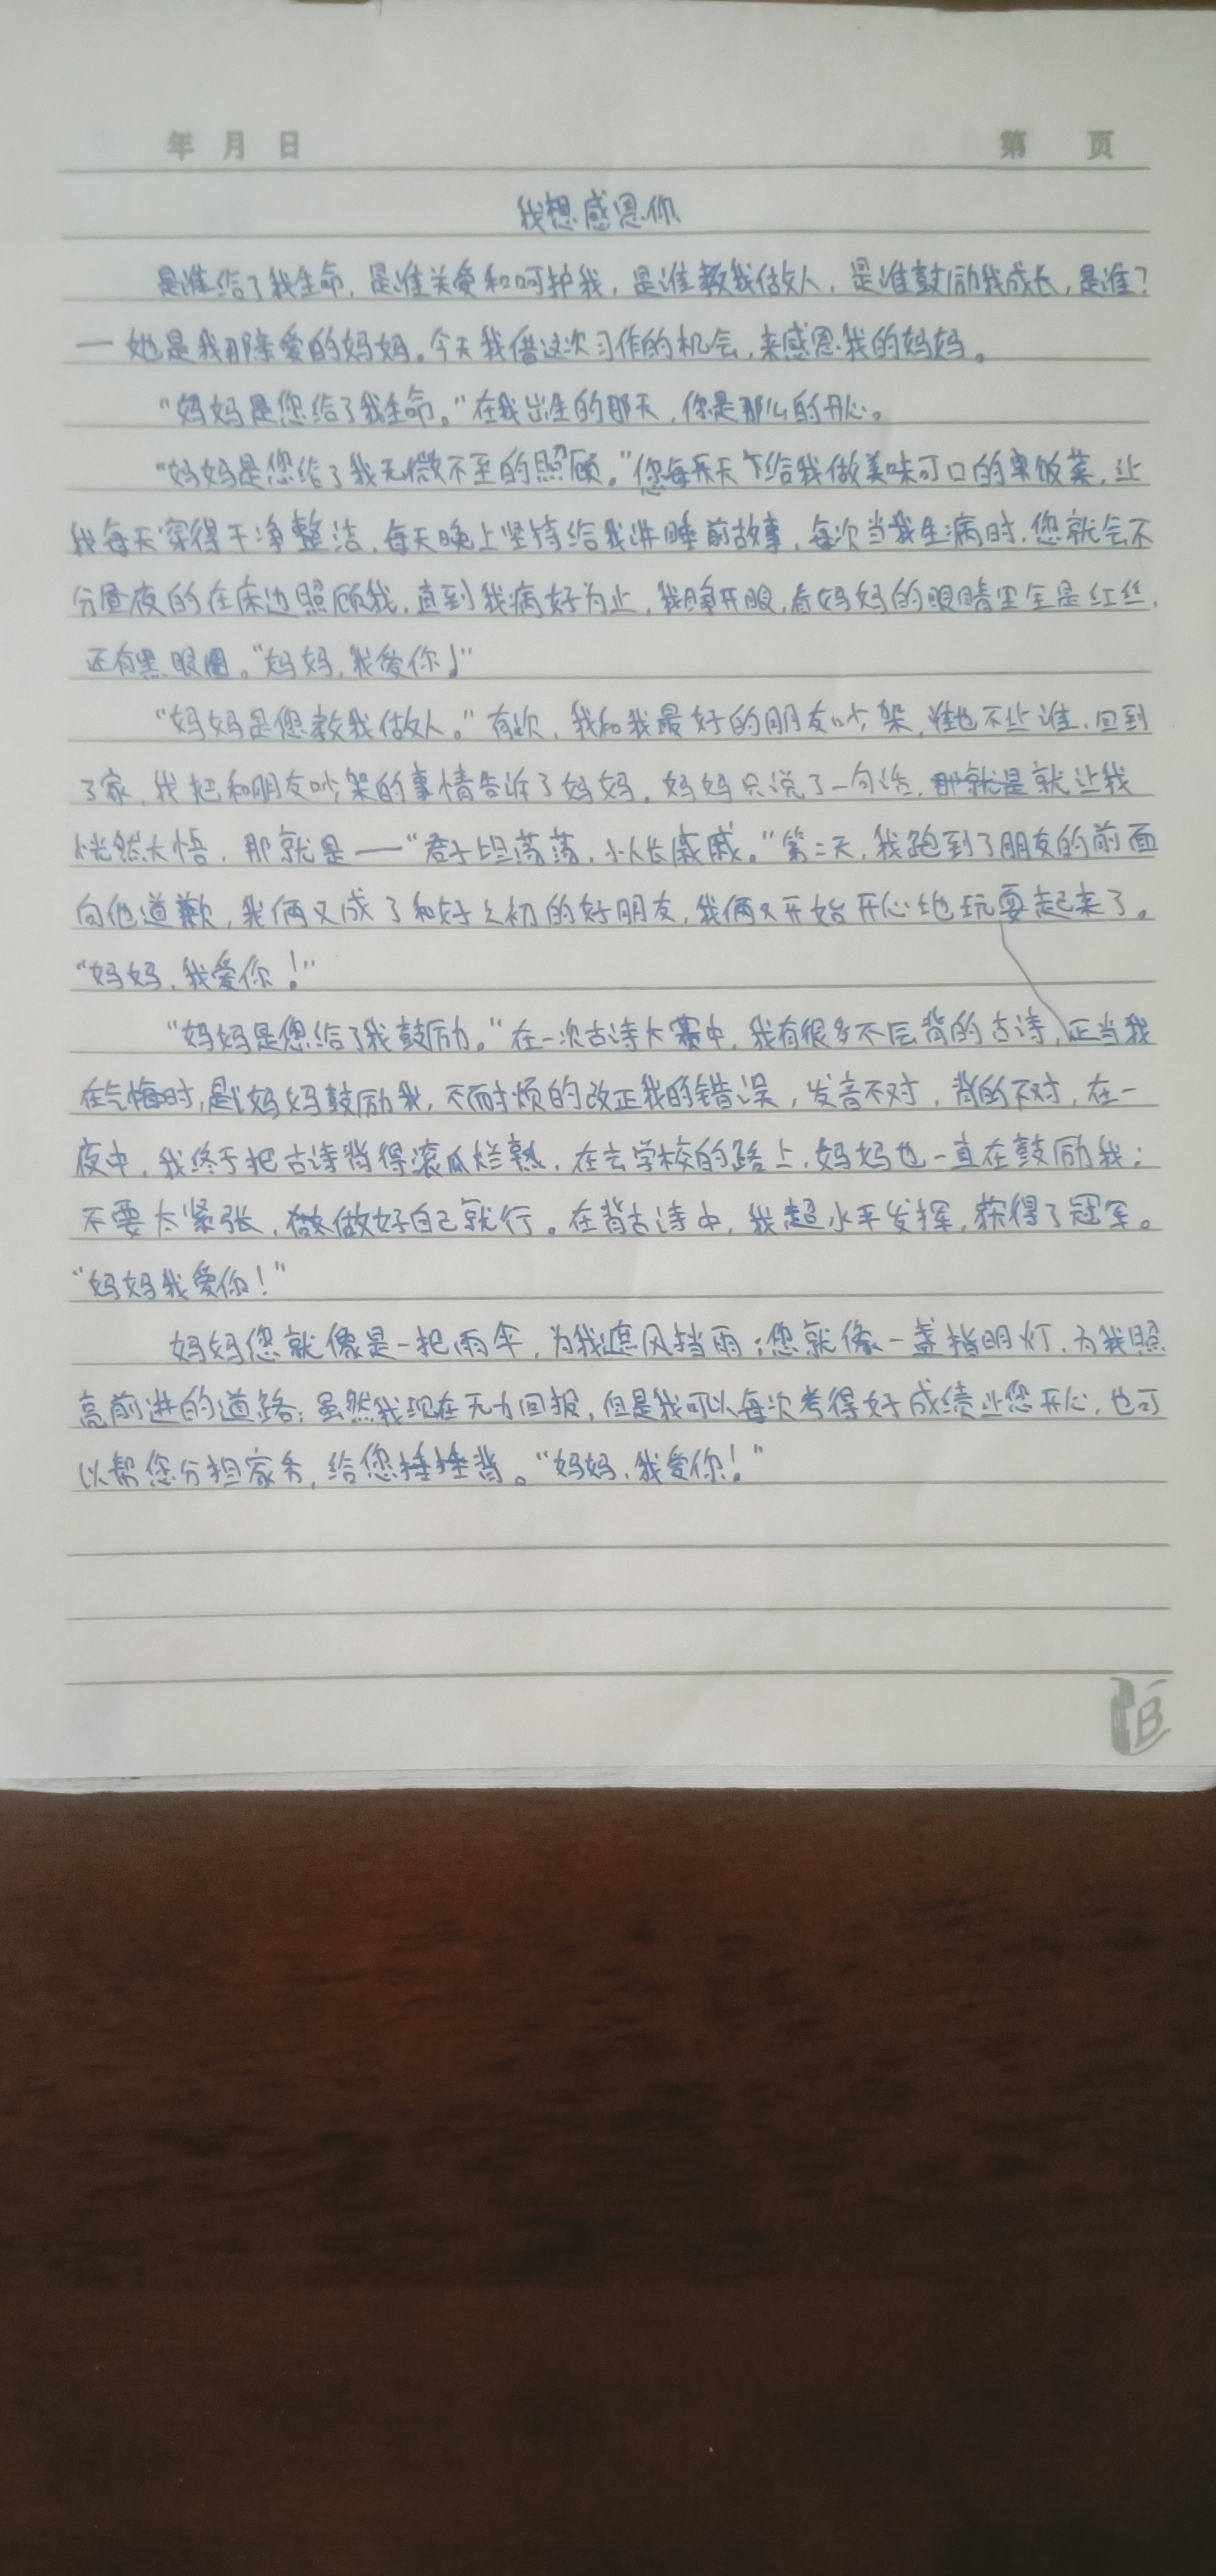 年 月 日 第 页
我想感恩你
是谁给了我生命,是谁关爱和呵护我,是谁教我做人,是谁鼓励我成长,是谁?
一她是我那亲爱的妈妈。今天我借这次习作的机会,来感恩我的妈妈。
“妈妈是您给了我生命。”在我出生的那天,你是那么的开心。
“妈妈是您给了我无微不至的照顾。”您每天给我做美味可口的饭菜,让
我每天穿得干净整洁,每天晚上坚持给我讲睡前故事,每次当我生病时,您就会不
分昼夜的在床边照顾我,直到我病好为止,我睁开眼,看妈妈的眼睛里全是红丝,
还有黑眼圈。“妈妈,我爱你!”
“妈妈是您教我做人。”有次,我和我最好的朋友吵架,谁也不让谁,回到
了家,我把和朋友吵架的事情告诉了妈妈,妈妈只说了一句话,就让我
恍然大悟,那就是——“君子坦荡荡,小人长戚戚。”第二天,我跑到了朋友的前面
向他道歉,我俩又成了和好之初的好朋友,我俩又开始开心地玩耍起来了。
“妈妈,我爱你!”
“妈妈是您给了我鼓励。”在一次古诗大赛中,我有很多不会背的古诗,正当我
在气悔时,是妈妈鼓励我,不耐烦的改正我的错误,发音不对,背的不对,在一
夜中,我终于把古诗背得滚瓜烂熟,在去学校的路上,妈妈也一直在鼓励我:
不要太紧张,做好自己就行。在背古诗中,我超水平发挥,获得了冠军。
“妈妈我爱你!”
妈妈您就像是一把雨伞,为我遮风挡雨;您就像一盏指明灯,为我照
亮前进的道路;虽然我现在无力回报,但是我可以每次考得好成绩让您开心,也可
以帮您分担家务,给您捶捶背。“妈妈,我爱你!”